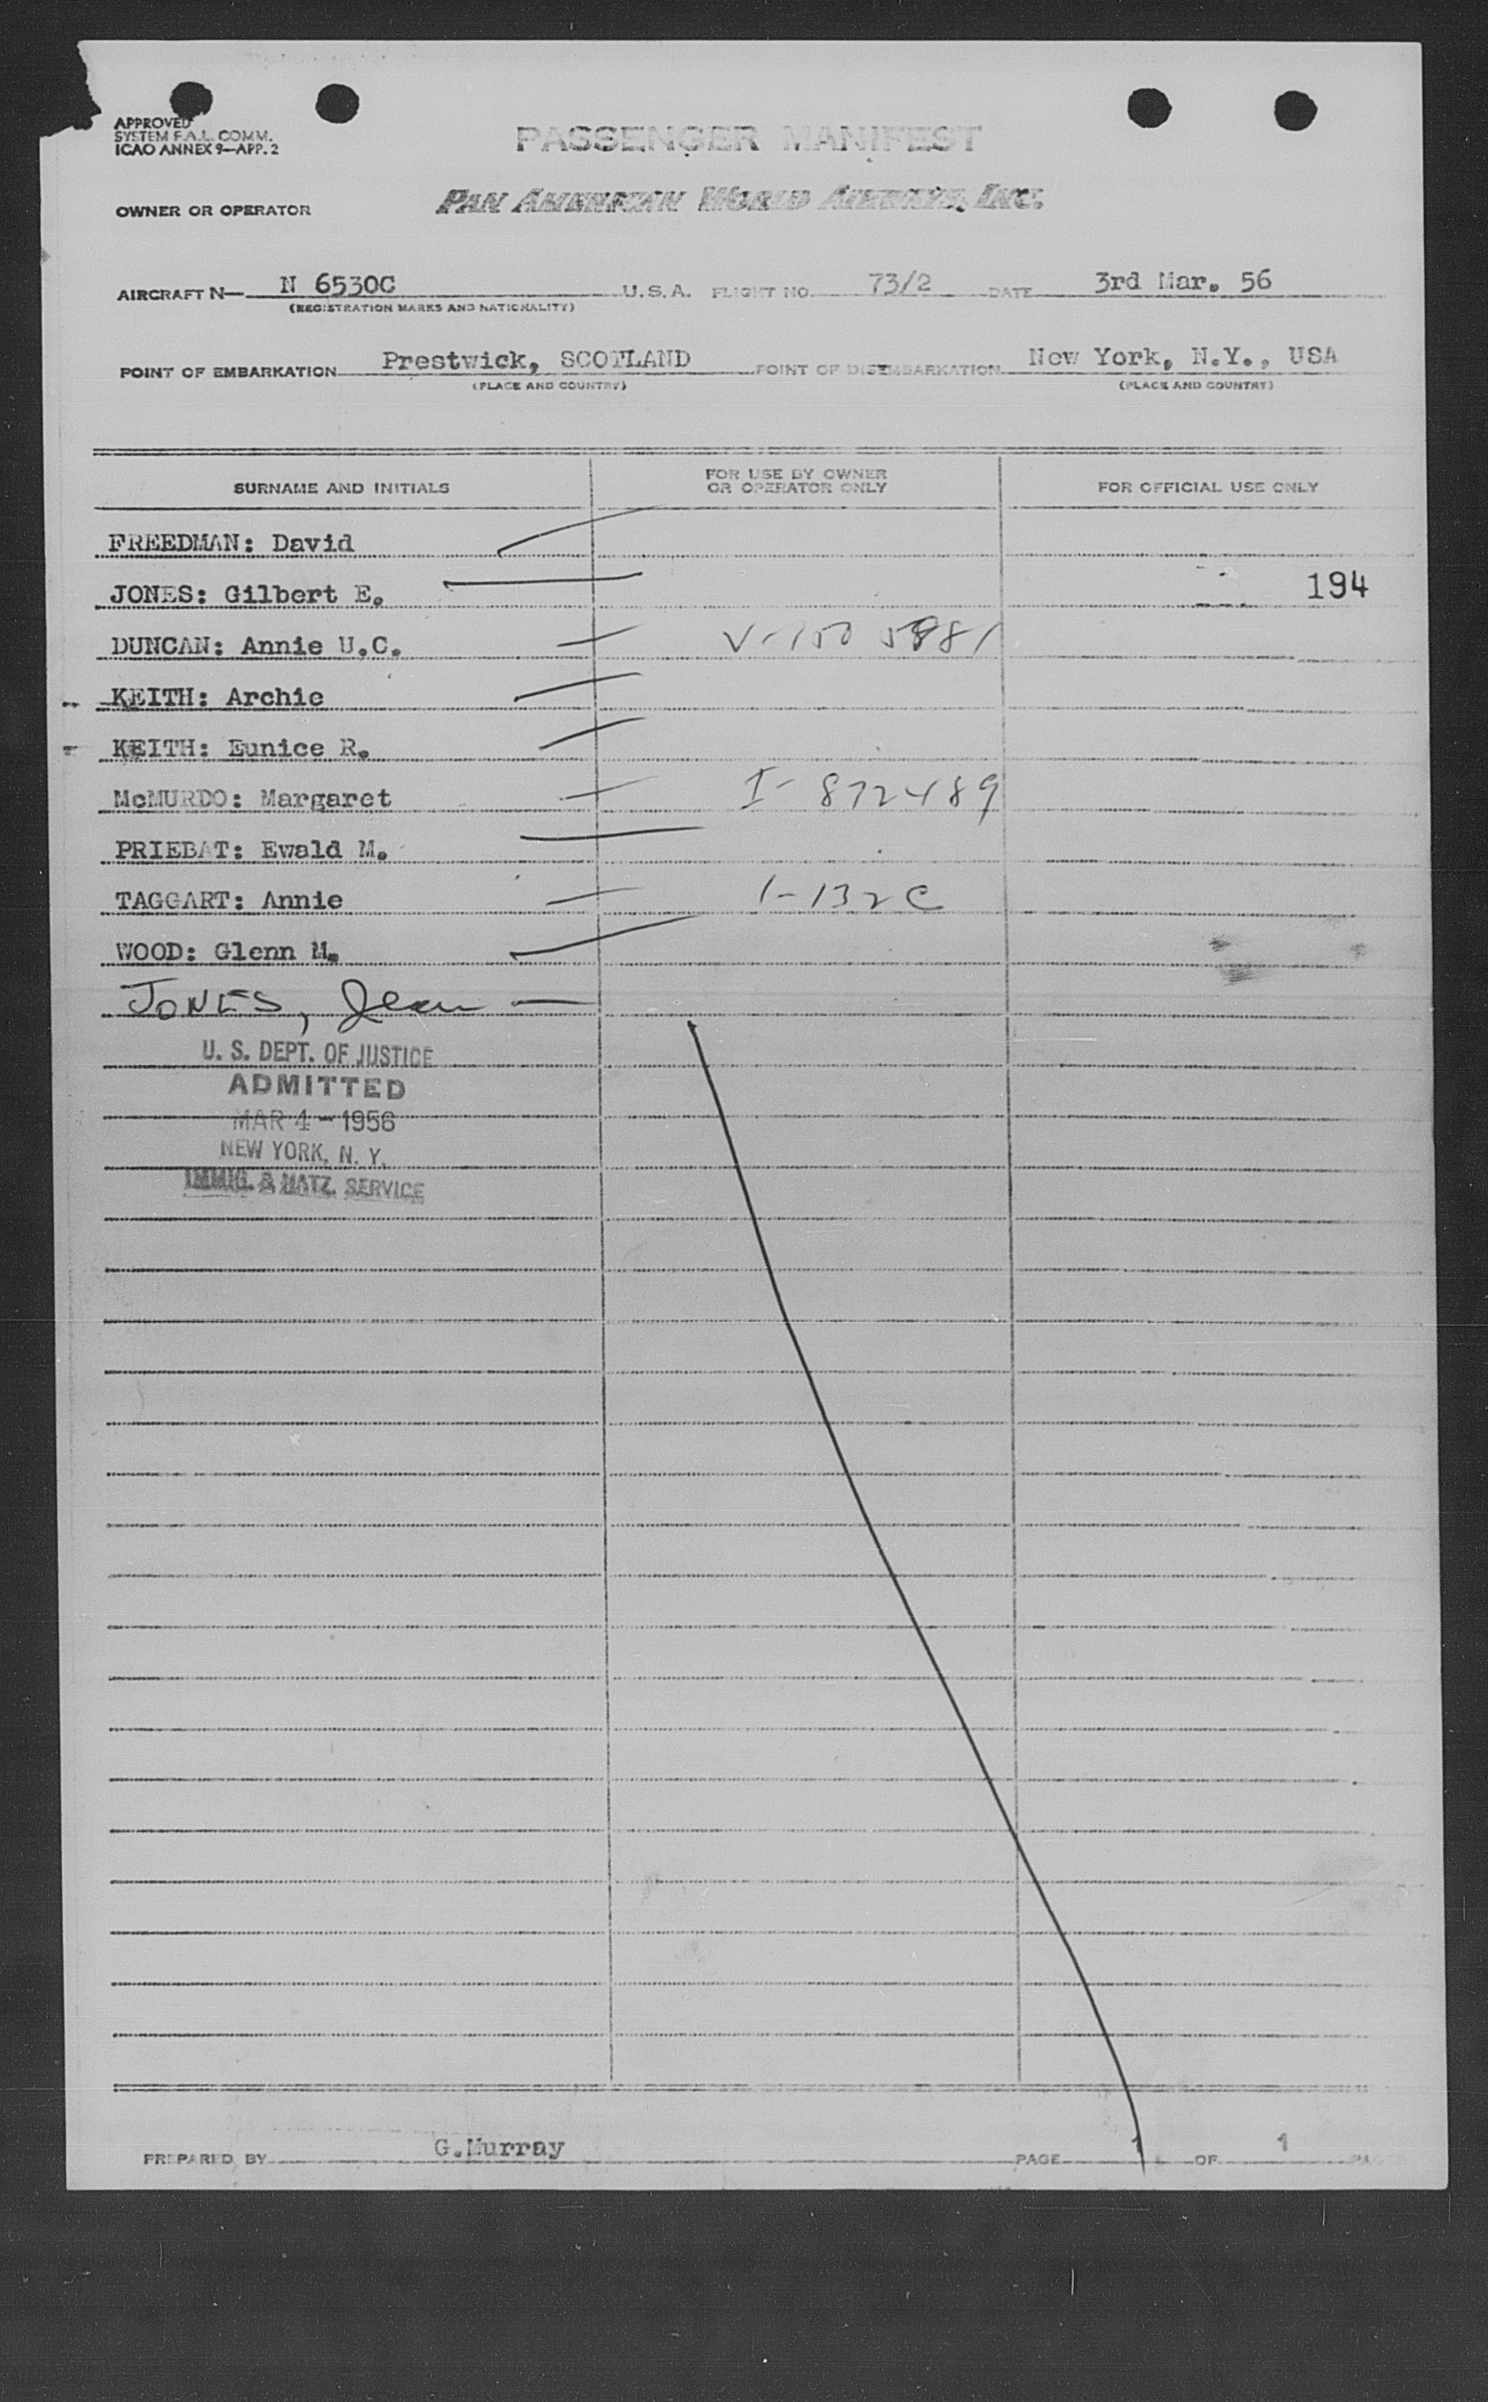 APPROVED
SYSTEM F.A.L. COMM.
ICAO ANNEX 9—APP. 2
PASSENGER MANIFEST
OWNER OR OPERATOR PAN AMERICAN WORLD AIRWAYS, INC.
AIRCRAFT N— N 6530C U.S.A. FLIGHT NO. 73/2 DATE 3rd Mar. 56
(REGISTRATION MARKS AND NATIONALITY)
POINT OF EMBARKATION Prestwick, SCOTLAND POINT OF DISEMBARKATION New York, N.Y., USA
(PLACE AND COUNTRY) (PLACE AND COUNTRY)
SURNAME AND INITIALS FOR USE BY OWNER OR OPERATOR ONLY FOR OFFICIAL USE ONLY
FREEDMAN: David
JONES: Gilbert E. 194
DUNCAN: Annie U.C. V-150 5981
KEITH: Archie
KEITH: Eunice R.
McMURDO: Margaret I-872489
PRIEBAT: Ewald M.
TAGGART: Annie 1-132C
WOOD: Glenn M.
JONES, Jean
U. S. DEPT. OF JUSTICE
ADMITTED
MAR 4 - 1956
NEW YORK, N. Y.
IMMIG. & NATZ. SERVICE
PREPARED BY G.Murray PAGE 1 OF 1